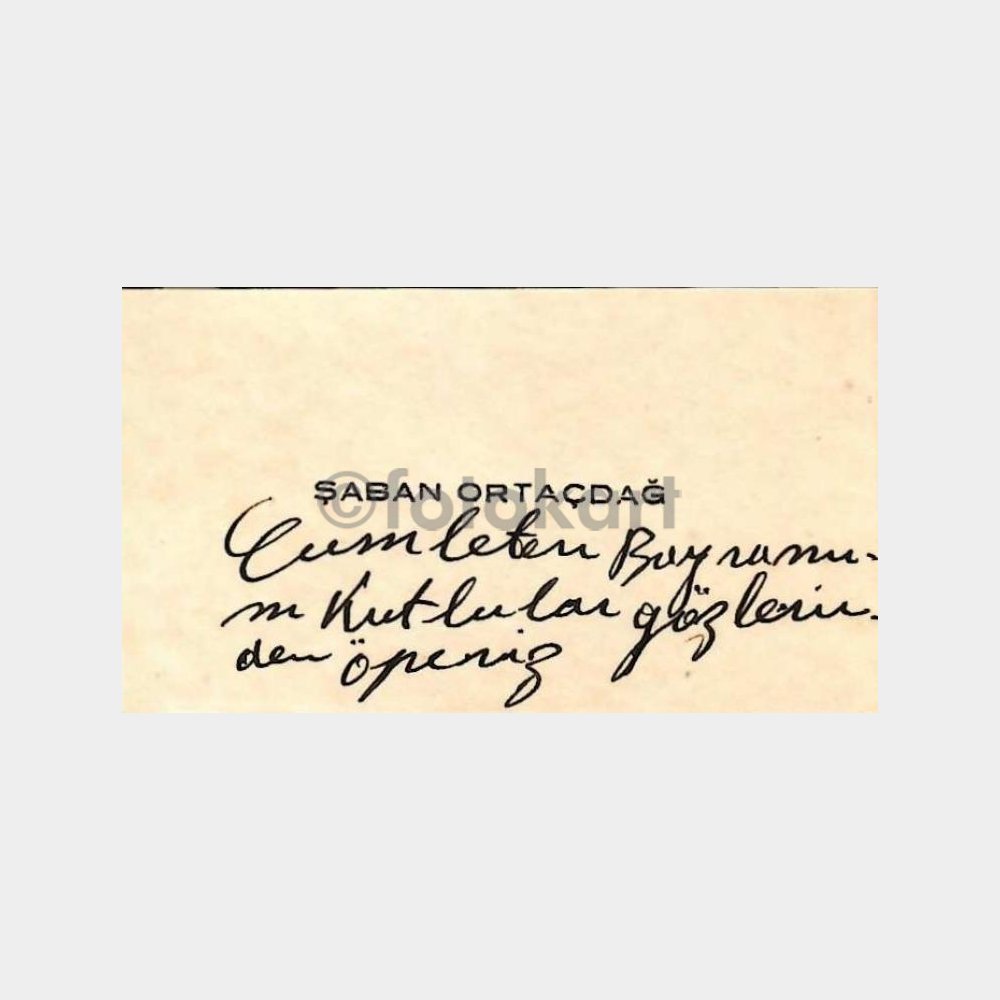 ŞABAN ORTAÇDAĞ
©fotokart
Cumleten Bayramı-
nı Kutlular gözlerin-
den öperiz